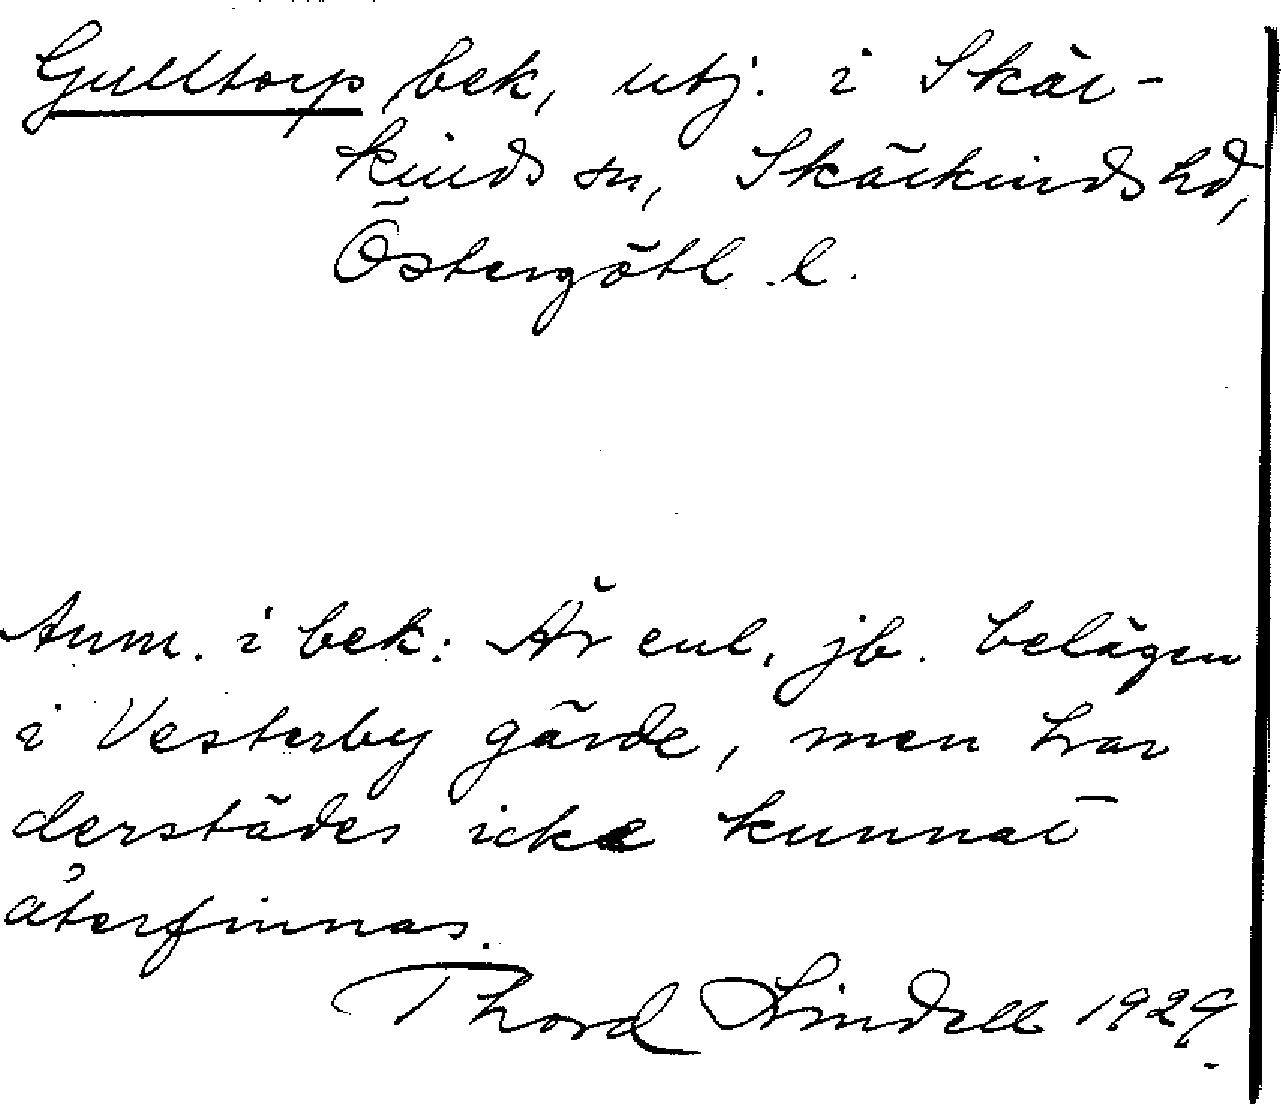 Gulltorp bek, utj. i Skär-
kinds sn, Skärkinds hd,
Östergötl. l.
Anm. i bek: Är enl. jb. belägen
i Vesterby gärde, men har
derstädes icke kunnat
återfinnas.
Thord Lindell 1929